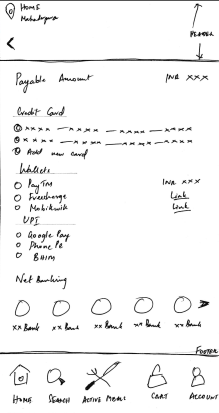 Home
Mahadevpura
HEADER
Payable Amount INR XXX
Credit Card
xxxx — xxxx — xxxx — xxxx
xxxx — xxxx — xxxx — xxxx
Add new card
Wallets
PayTM INR XXX
Freecharge Link
Mobikwik Link
UPI
Google Pay
Phone Pe
BHIM
Net Banking
xx Bank xx Bank xx Bank xx Bank xx Bank
FOOTER
HOME SEARCH ACTIVE MEALS CART ACCOUNT